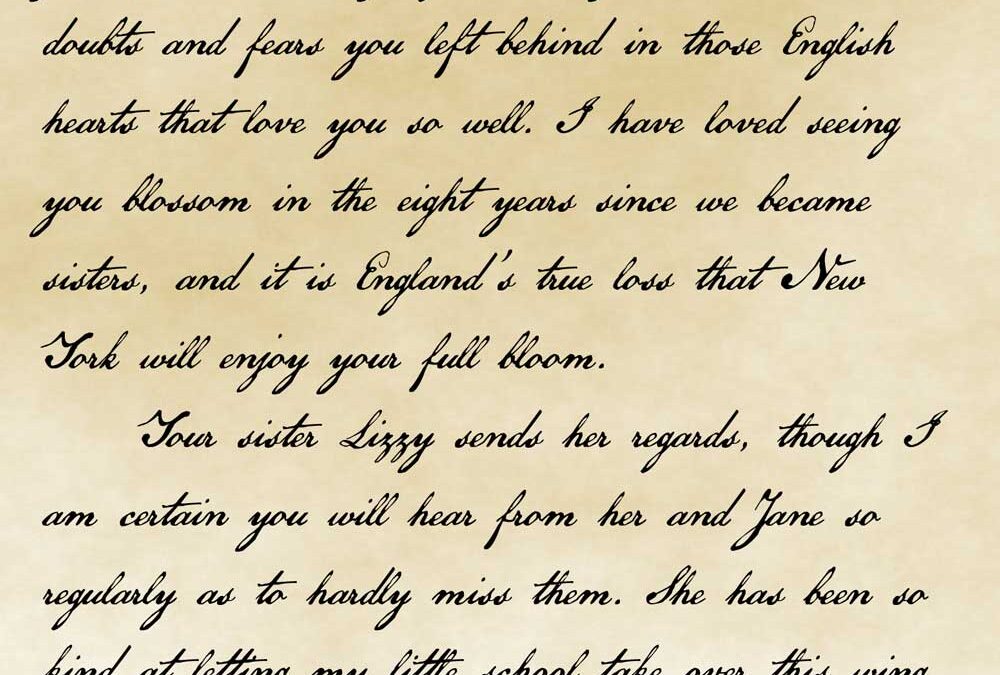 doubts and fears you left behind in those English
hearts that love you so well. I have loved seeing
you blossom in the eight years since we became
sisters, and it is England's true loss that New
York will enjoy your full bloom.
Your sister Lizzy sends her regards, though I
am certain you will hear from her and Jane so
regularly as to hardly miss them. She has been so
kind at letting my little school take over this wing